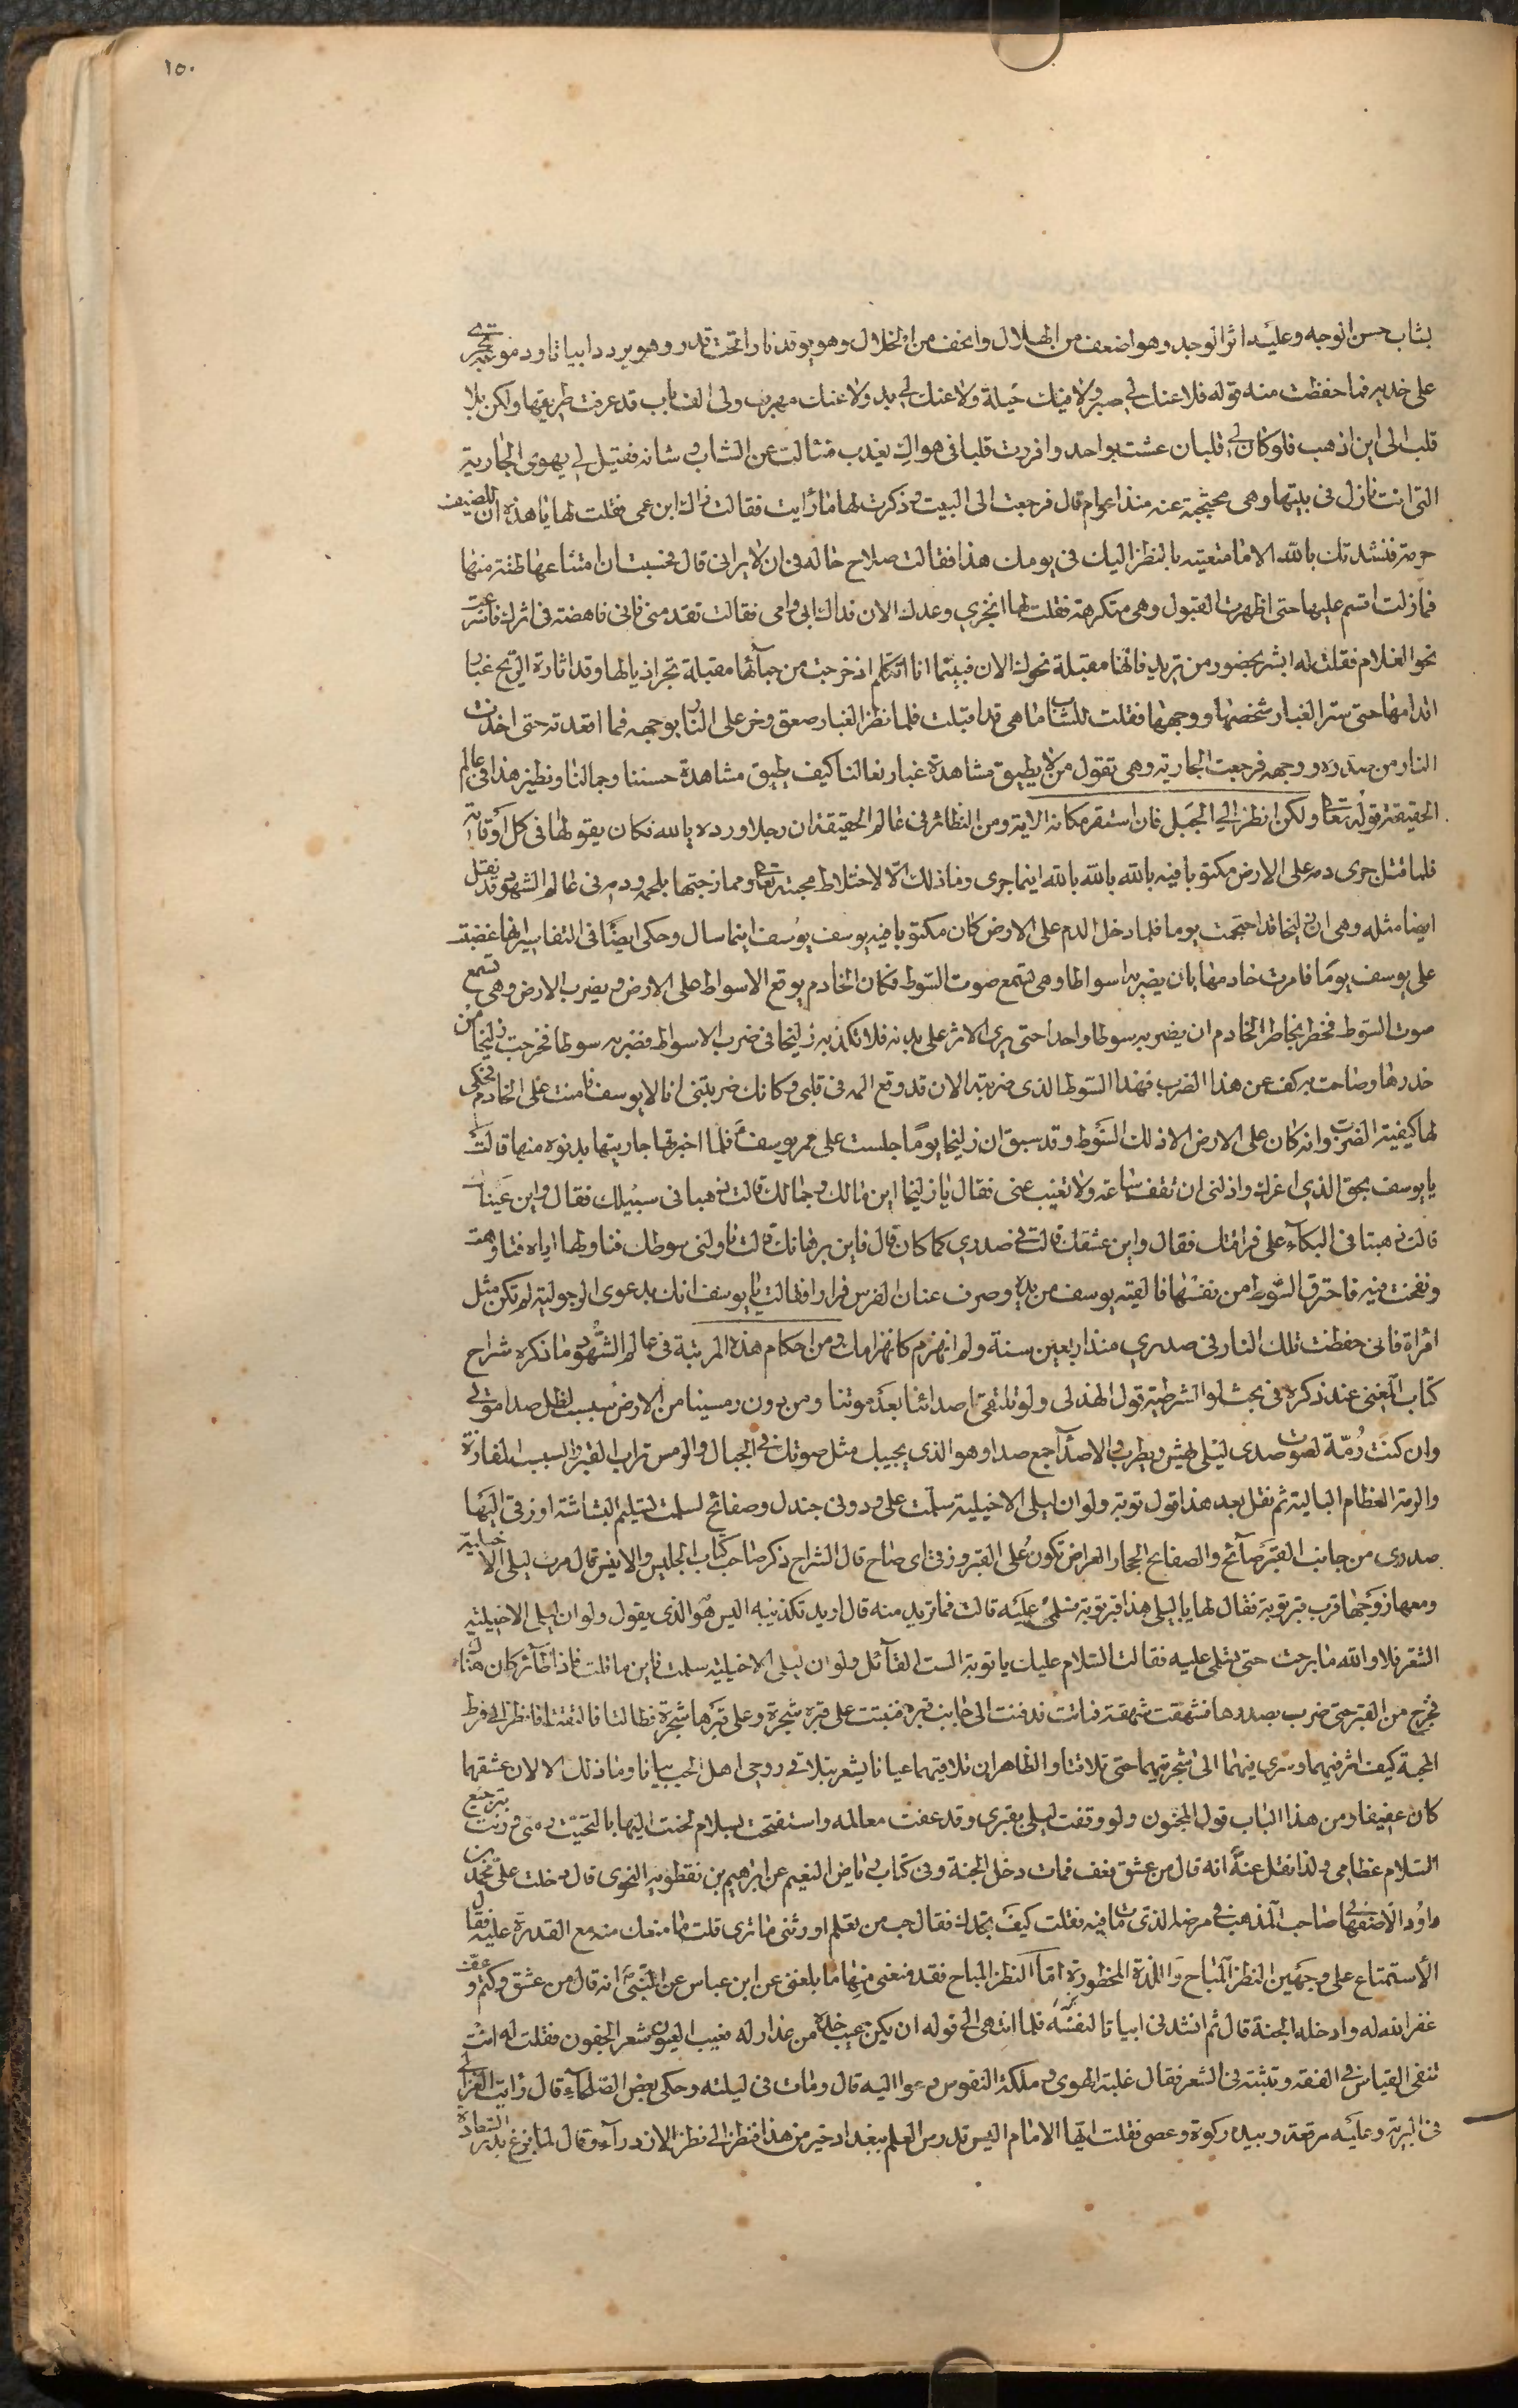 ١٥٠
بشاب حسن الوجه وعليه اثر الوجد وهو اضعف من الهلال وانحف من الخلال وهو يوقد نارا تحت قدر وهو يردد ابياتا ودموعه تجرى
على خديه فما حفظت منه قوله فلا عنك لي صبر ولا فيك حيلة ولا عنك لي بد ولا عنك مهرب ولى الف باب قد عرفت طريقها ولكن بلا
قلب الى اين اذهب فلو كان لي قلبان عشت بواحد وافردت قلبا في هواك يعذب فسألت عن الشاب وشانه فقيل لي يهوى الجارية
التي انت نازل في بيتها وهى محتجبة عنه منذ اعوام قال فرجعت الى البيت وذكرت لها ما رأيت فقالت ذاك ابن عمى فقلت لها يا هذه ان للضيف
حرمة فنشدتك بالله الا ما متعتيه بالنظر اليك في يومك هذا فقالت صلاح حاله في ان لا يرانى قال فحسبت ان امتناعها ظنة منها
فما زلت اقسم عليها حتى اظهرت القبول وهى متكرهة فقلت لها انجزي وعدك الان فداك ابى وامى فقالت تقدمنى فانى ناهضة في اثرك فاسرعت
نحو الغلام فقلت له ابشر بحضور من تريد فانها مقبلة نحوك الان فبينما انا اتكلم اذ خرجت من خبائها مقبلة تجر اذيالها وقد اثارت الريح غبار
اقدامها حتى ستر الغبار شخصها ووجهها فقلت للشاب ها هى قد اقبلت فلما نظر الغبار صعق وخر على النار بوجهه فما اقعدته حتى اخذت
النار من صدره ووجهه فرجعت الجارية وهى تقول من لا يطيق مشاهدة غبار نعالنا كيف يطيق مشاهدة حسننا وجمالنا ونظير هذا في عالم
الحقيقة قوله تعالى ولكن انظر الي الجبل فان استقر مكانه الاية ومن النظائر في عالم الحقيقة ان رجلا ورده يا الله فكان يقولها في كل اوقاته
فلما قتل جرى دمه على الارض مكتوبا فيه يا الله يا الله يا الله اينما جرى وما ذلك الا لاختلاط محبته تعالى وممازجتها بلحمه ودمه وفي عالم الشهود نقل
ايضا مثله وهى ان زليخا قد احتجمت يوما فلما دخل الدم على الارض كان مكتوبا فيه يوسف يوسف اينما سال وحكى ايضًا في التفاسير انها غضبت
على يوسف يومًا فامرت خادمها بان يضربه اسواطا وهى تسمع صوت السّوط فكان الخادم يوقع الاسواط على الارض ويضرب الارض وهى تسمع
صوت السّوط فخطر بخاطر الخادم ان يضربه سوطا واحدا حتى يرى الاثر على بدنه فلا تكذبه زليخا في ضرب الاسواط فضربه سوطا فخرجت زليخا من
خدرها وصاحت به كف عن هذا الضرب فهذا السّوط الذى ضربته الان قد وقع المه في قلبى وكانك ضربتنى انا لا يوسف فامنت على الخادم فحكى
لها كيفية الضرب وانه كان على الارض الا ذلك السّوط وقد سبق ان زليخا يومًا جلست على ممر يوسف فلما اخبرتها جاريتها بدنوه منها قالت
يا يوسف بحق الذي اعزك واذلنى ان تقف ساعة ولا تغيب عنى فقال يا زليخا اين مالك وجمالك قالت ذهبا في سبيلك فقال واين عيناك
قالت ذهبتا في البكاء على فراقك فقال واين عشقك قالت في صدري كما كان قال فاين برهانك قالت ناولنى سوطك فناولها اياه فتاوهت
ونفخت فيه فاحترق السّوط من نفسها فالقيه يوسف من يده وصرف عنان الفرس فرارا فقالت يا يوسف انك بدعوى الرجولية لم تكن مثل
امرأة فانى حفظت تلك النار في صدري منذ اربعين سنة ولم انهزم كانهزامك ومن احكام هذه المرتبة في عالم الشهود ما ذكره شراح
كتاب المغنى عند ذكره في بحث لو الشرطية قول الهذلى ولو تلتقى اصداؤنا بعد موتنا ومن دون رمسينا من الارض سبسب لظل صدا صوتي
وان كنت رُمّة لصوت صدى ليلى يهش ويطرب والاصدآ جمع صدا وهو الذى يجيبك مثل صوتك في الجبال والرمس تراب القبر والسبسب المفازة
والرمة العظام البالية ثم نقل بعد هذا قول توبة ولو ان ليلى الاخيلية سلّمت على ودونى جندل وصفائح لسلمت تسليم البشاشة او زقى اليها
صدى من جانب القبر صآئح والصفايح الحجار العراض تكون على القبر وزقى اى صاح قال الشراح ذكر صاحب كتاب الجليس والانيس قال مرت ليلى الاخيلية
ومعها زوجها قرب قبر توبة فقال لها يا ليلى هذا قبر توبة فسلمى عليه قالت فما تريد منه قال اريد تكذيبه اليس هو الذى يقول ولو ان ليلى الاخيلية
الشعر فلا والله ما برحت حتى تسلمى عليه فقالت السلام عليك يا توبة الست القآئل ولو ان ليلى الاخيلية سلمت فاين ما قلت فاذا طآئر كان هناك
فخرج من القبر حتى ضرب بصدرها فشهقت شهقة فماتت فدفنت الى جانب قبره فنبتت على قبره شجرة وعلى قبرها شجرة فطالتا فالتفتا فانظر الى فرط
المحبة كيف اثر فيهما وسرى منهما الى شجرتيهما حتى تلاقتا والظاهر ان تلاقيهما عيانا يشعر بتلاقى روحى اهل الحب بيانا وما ذلك الا لان عشقهما
كان عفيفا ومن هذا الباب قول المجنون ولو وقفت ليلى بقبرى وقد عفت معالمه واستفتحت بسلام لحنت اليها بالتحية رمتى ورنت بترجيع
السّلام عظامى ولذا نقل عنه انه قال من عشق فعف فمات دخل الجنة وفى كتاب رياض النعيم عن ابرهيم بن نفطويه النحوى قال دخلت على محمد بن
داوُد الاصفهانى صاحب المذهب في مرضه الذى مات فيه فقلت كيف تجدك فقال حب من تعلم اورثنى ما ترى قلت ما منعك منه مع القدرة عليه فقال
الأستمتاع على وجهين النظر المباح واللذة المحظورة امّا النظر المباح فقد منعنى منها ما بلغنى عن ابن عباس عن النبى انه قال من عشق وكتم وعف
غفر الله له وادخله الجنة قال ثم انشدنى ابياتا لنفسه فلما انتهى الى قوله ان يكن عيب خده من عذار له فعيب العيون شعر الجفون فقلت له انت
تنفى القياس في الفقه وتثبته في الشعر فقال غلبة الهوى وملكة النفوس دعوا اليه قال ومات في ليلته وحكى بعض الصلحاء قال رأيت الغزالى
في البرية وعليه مرقعة وبيده ركوة وعصى فقلت ايها الامام اليس تدرس العلم ببغداد خير من هذا فنظر الى نظر الازدرآء وقال لما بزغ بدر السعادة